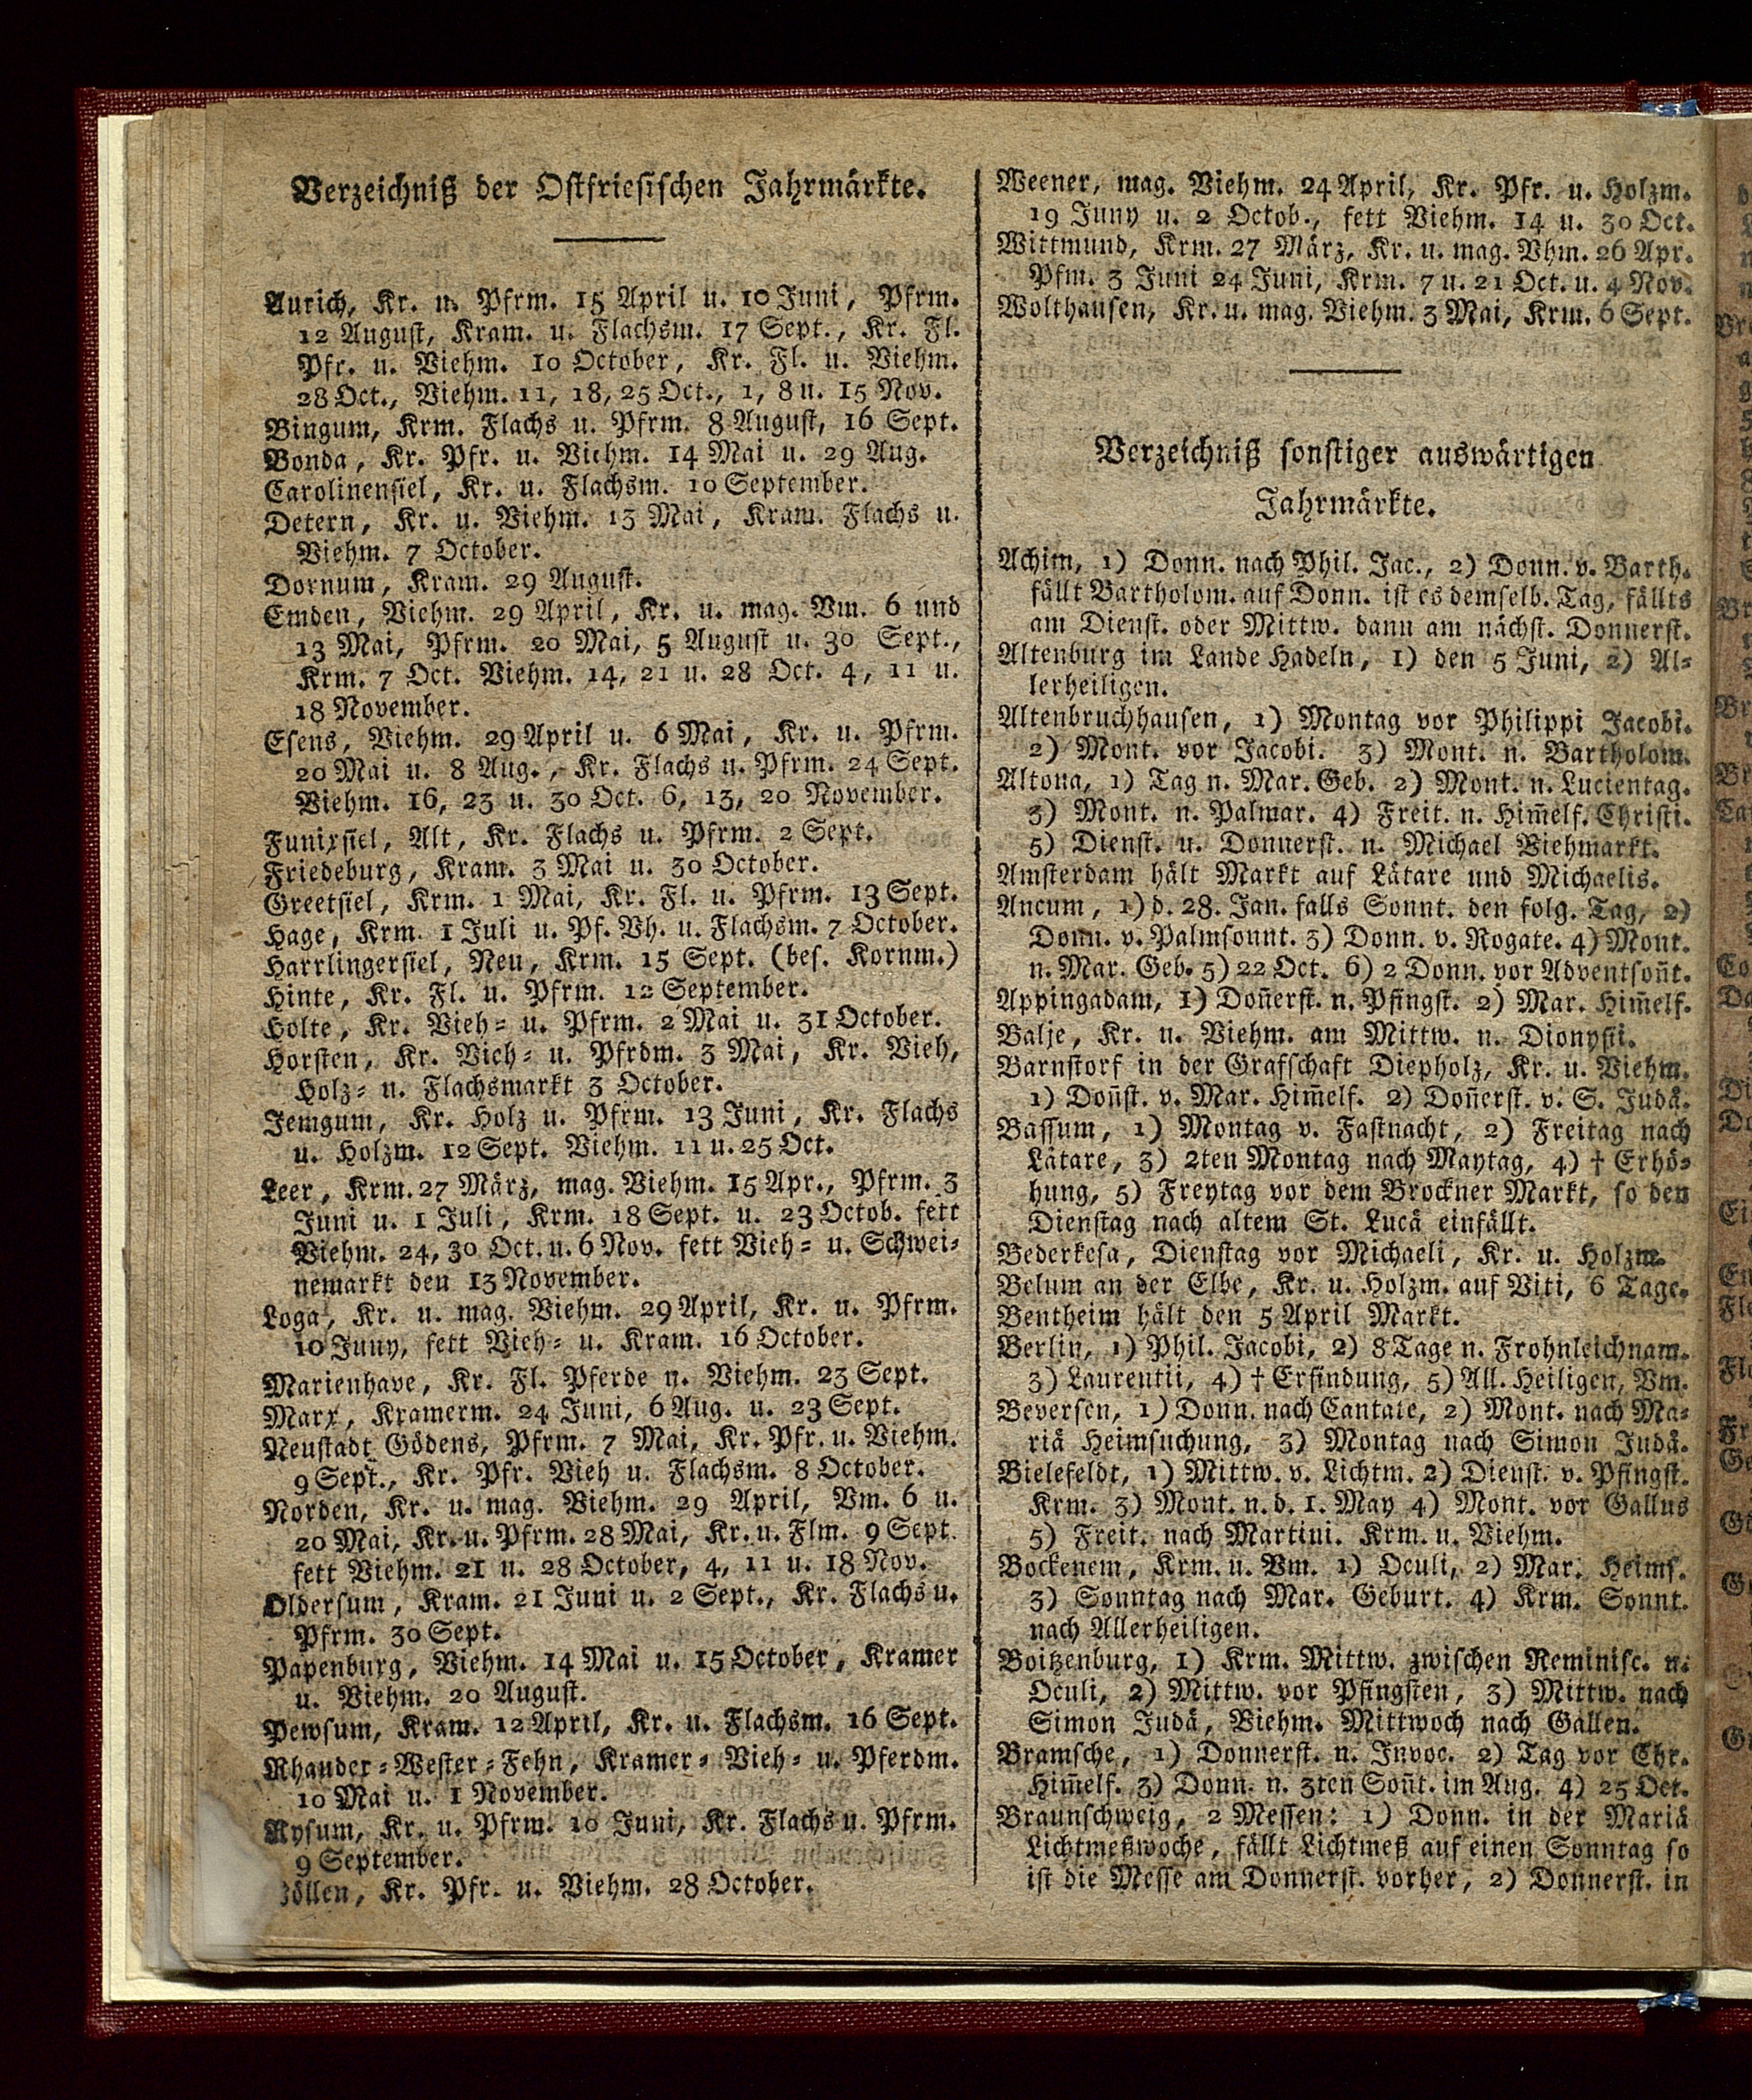 Verzeichniß der Ostfriesischen Jahrmärkte.
Aurich, Kr. u. Pfrm. 15 April u. 10 Juni, Pfrm.
12 August, Kram. u. Flachsm. 17 Sept., Kr. Fl.
Pfr. u. Viehm. 10 October, Kr. Fl. u. Viehm.
28 Oct., Viehm. 11, 18, 25 Oct., 1, 8 u. 15 Nov.
Bingum, Krm. Flachs u. Pfrm. 8 August, 16 Sept.
Bonda, Kr. Pfr. u. Viehm. 14 Mai u. 29 Aug.
Carolinensiel, Kr. u. Flachsm. 10 September.
Detern, Kr. u. Viehm. 13 Mai, Kram. Flachs u.
Viehm. 7 October.
Dornum, Kram. 29 August.
Emden, Viehm. 29 April, Kr. u. mag. Vm. 6 und
13 Mai, Pfrm. 20 Mai, 5 August u. 30 Sept.,
Krm. 7 Oct. Viehm. 14, 21 u. 28 Oct. 4, 11 u.
18 November.
Esens, Viehm. 29 April u. 6 Mai, Kr. u. Pfrm.
20 Mai u. 8 Aug., Kr. Flachs u. Pfrm. 24 Sept.
Viehm. 16, 23 u. 30 Oct. 6, 13, 20 November.
Funixsiel, Alt, Kr. Flachs u. Pfrm. 2 Sept.
Friedeburg, Kram. 3 Mai u. 30 October.
Greetsiel, Krm. 1 Mai, Kr. Fl. u. Pfrm. 13 Sept.
Hage, Krm. 1 Juli u. Pf. Vh. u. Flachsm. 7 October.
Harrlingersiel, Neu, Krm. 15 Sept. (bes. Kornm.)
Hinte, Kr. Fl. u. Pfrm. 12 September.
Holte, Kr. Vieh= u. Pfrm. 2 Mai u. 31 October.
Horsten, Kr. Vieh= u. Pfrdm. 3 Mai, Kr. Vieh,
Holz= u. Flachsmarkt 3 October.
Jemgum, Kr. Holz u. Pfrm. 13 Juni, Kr. Flachs
u. Holzm. 12 Sept. Viehm. 11 u. 25 Oct.
Leer, Krm. 27 März, mag. Viehm. 15 Apr., Pfrm. 3
Juni u. 1 Juli, Krm. 18 Sept. u. 23 Octob. fett
Viehm. 24, 30 Oct. u. 6 Nov. fett Vieh= u. Schwei=
nemarkt den 13 November.
Loga, Kr. u. mag. Viehm. 29 April, Kr. u. Pfrm.
10 Juny, fett Vieh= u. Kram. 16 October.
Marienhave, Kr. Fl. Pferde u. Viehm. 23 Sept.
Marx, Kramerm. 24 Juni, 6 Aug. u. 23 Sept.
Neustadt Gödens, Pfrm. 7 Mai, Kr. Pfr. u. Viehm.
9 Sept., Kr. Pfr. Vieh u. Flachsm. 8 October.
Norden, Kr. u. mag. Viehm. 29 April, Vm. 6 u.
20 Mai, Kr. u. Pfrm. 28 Mai, Kr. u. Flm. 9 Sept.
fett Viehm. 21 u. 28 October, 4, 11 u. 18 Nov.
Oldersum, Kram. 21 Juni u. 2 Sept., Kr. Flachs u.
Pfrm. 30 Sept.
Papenburg, Viehm. 14 Mai u. 15 October, Kramer
u. Viehm. 20 August.
Pewsum, Kram. 12 April, Kr. u. Flachsm. 16 Sept.
Rhauder=Wester=Fehn, Kramer= Vieh= u. Pferdm.
10 Mai u. 1 November.
Rysum, Kr. u. Pfrm. 10 Juni, Kr. Flachs u. Pfrm.
9 September.
Zöllen, Kr. Pfr. u. Viehm. 28 October.
Weener, mag. Viehm. 24 April, Kr. Pfr. u. Holzm.
19 Juny u. 2 Octob., fett Viehm. 14 u. 30 Oct.
Wittmund, Krm. 27 März, Kr. u. mag. Vhm. 26 Apr.
Pfm. 3 Juni 24 Juni, Krm. 7 u. 21 Oct. u. 4 Nov.
Wolthausen, Kr. u. mag. Viehm. 3 Mai, Krm. 6 Sept.
Verzeichniß sonstiger auswärtigen
Jahrmärkte.
Achim, 1) Donn. nach Phil. Jac., 2) Donn. v. Barth.
fällt Bartholom. auf Donn. ist es demselb. Tag, fällts
am Dienst. oder Mittw. dann am nächst. Donnerst.
Altenburg im Lande Hadeln, 1) den 5 Juni, 2) Al=
lerheiligen.
Altenbruchhausen, 1) Montag vor Philippi Jacobi.
2) Mont. vor Jacobi. 3) Mont. n. Bartholom.
Altona, 1) Tag n. Mar. Geb. 2) Mont. n. Lucientag.
3) Mont. n. Palmar. 4) Freit. n. Him̄elf. Christi.
5) Dienst. u. Donnerst. n. Michael Viehmarkt.
Amsterdam hält Markt auf Lätare und Michaelis.
Ancum, 1) d. 28. Jan. falls Sonnt. den folg. Tag, 2)
Donn. v. Palmsonnt. 3) Donn. v. Rogate. 4) Mont.
n. Mar. Geb. 5) 22 Oct. 6) 2 Donn. vor Adventson̄t.
Appingadam, 1) Don̄erst. n. Pfingst. 2) Mar. Him̄elf.
Balje, Kr. u. Viehm. am Mittw. n. Dionysii.
Barnstorf in der Grafschaft Diepholz, Kr. u. Viehm.
1) Don̄st. v. Mar. Him̄elf. 2) Don̄erst. v. S. Judä.
Bassum, 1) Montag v. Fastnacht, 2) Freitag nach
Lätare, 3) 2ten Montag nach Maytag, 4) † Erhö=
hung, 5) Freytag vor dem Brockner Markt, so den
Dienstag nach altem St. Lucä einfällt.
Bederkesa, Dienstag vor Michaeli, Kr. u. Holzm.
Belum an der Elbe, Kr. u. Holzm. auf Viti, 6 Tage.
Bentheim hält den 5 April Markt.
Berlin, 1) Phil. Jacobi, 2) 8 Tage n. Frohnleichnam.
3) Laurentii, 4) † Erfindung, 5) All. Heiligen, Vm.
Beversen, 1) Donn. nach Cantate, 2) Mont. nach Ma=
riä Heimsuchung, 3) Montag nach Simon Judä.
Bielefeldt, 1) Mittw. v. Lichtm. 2) Dienst. v. Pfingst.
Krm. 3) Mont. n. d. 1. May 4) Mont. vor Gallus
5) Freit. nach Martini. Krm. u. Viehm.
Bockenem, Krm. u. Vm. 1) Oculi, 2) Mar. Heims.
3) Sonntag nach Mar. Geburt. 4) Krm. Sonnt.
nach Allerheiligen.
Boitzenburg, 1) Krm. Mittw. zwischen Reminisc. u.
Oculi, 2) Mittw. vor Pfingsten, 3) Mittw. nach
Simon Judä, Viehm. Mittwoch nach Gallen.
Bramsche, 1) Donnerst. n. Invoc. 2) Tag vor Chr.
Him̄elf. 3) Donn. n. 3ten Son̄t. im Aug. 4) 25 Oct.
Braunschweig, 2 Messen: 1) Donn. in der Mariä
Lichtmeßwoche, fällt Lichtmeß auf einen Sonntag so
ist die Messe am Donnerst. vorher, 2) Donnerst. in